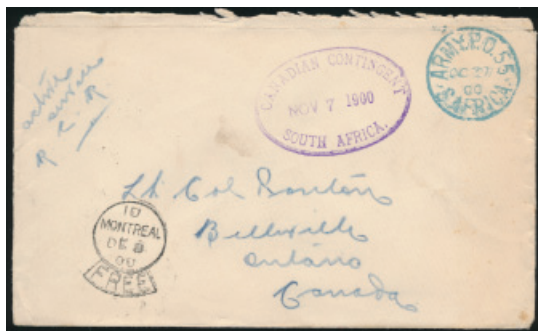 active
service
R C R
CANADIAN CONTINGENT
NOV 7 1900
SOUTH AFRICA.
ARMY P.O. 55
OC 27
00
S. AFRICA.
Lt Col
Belleville
Ontario
Canada
10
MONTREAL
DE
00
FREE